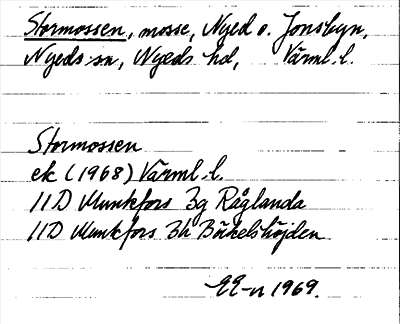 Stormossen, mosse, Nyed o. Jonsbyn,
Nyeds sn, Nyeds hd, Värml. l.
Stormossen
ek (1968) Värml. l.
11D Munkfors 3g Råglanda
11D Munkfors 3h Bäckelshöjden
EE-n 1969.